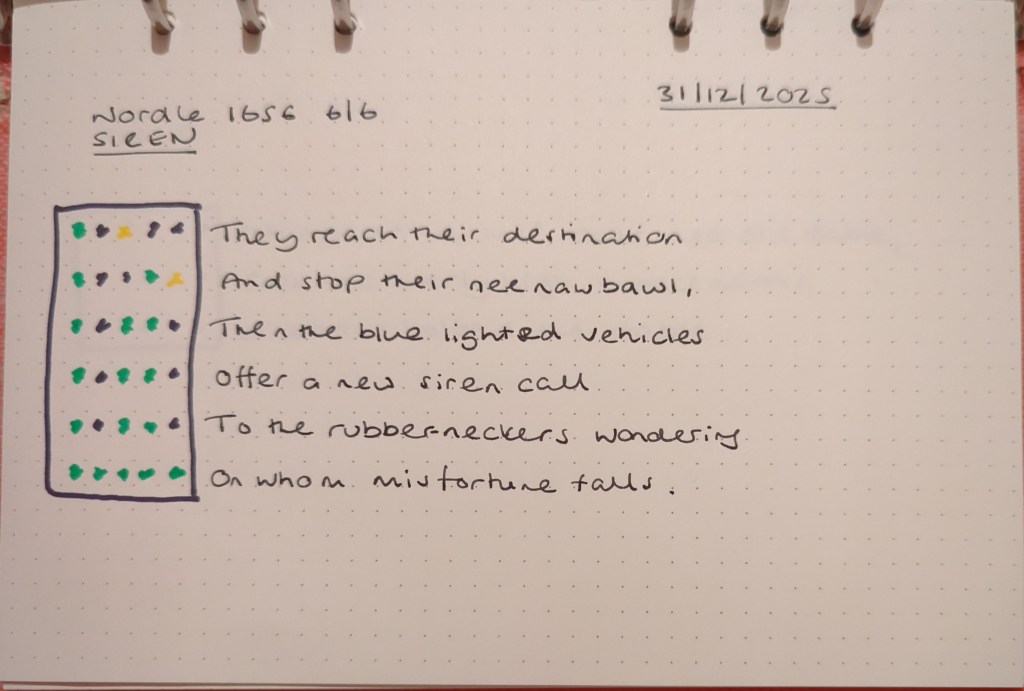 Wordle 1656 6/6
31/12/2025
SIREN
They reach their destination
And stop their nee naw bawl,
Then the blue lighted vehicles
Offer a new siren call
To the rubber-neckers wondering
On whom misfortune falls.